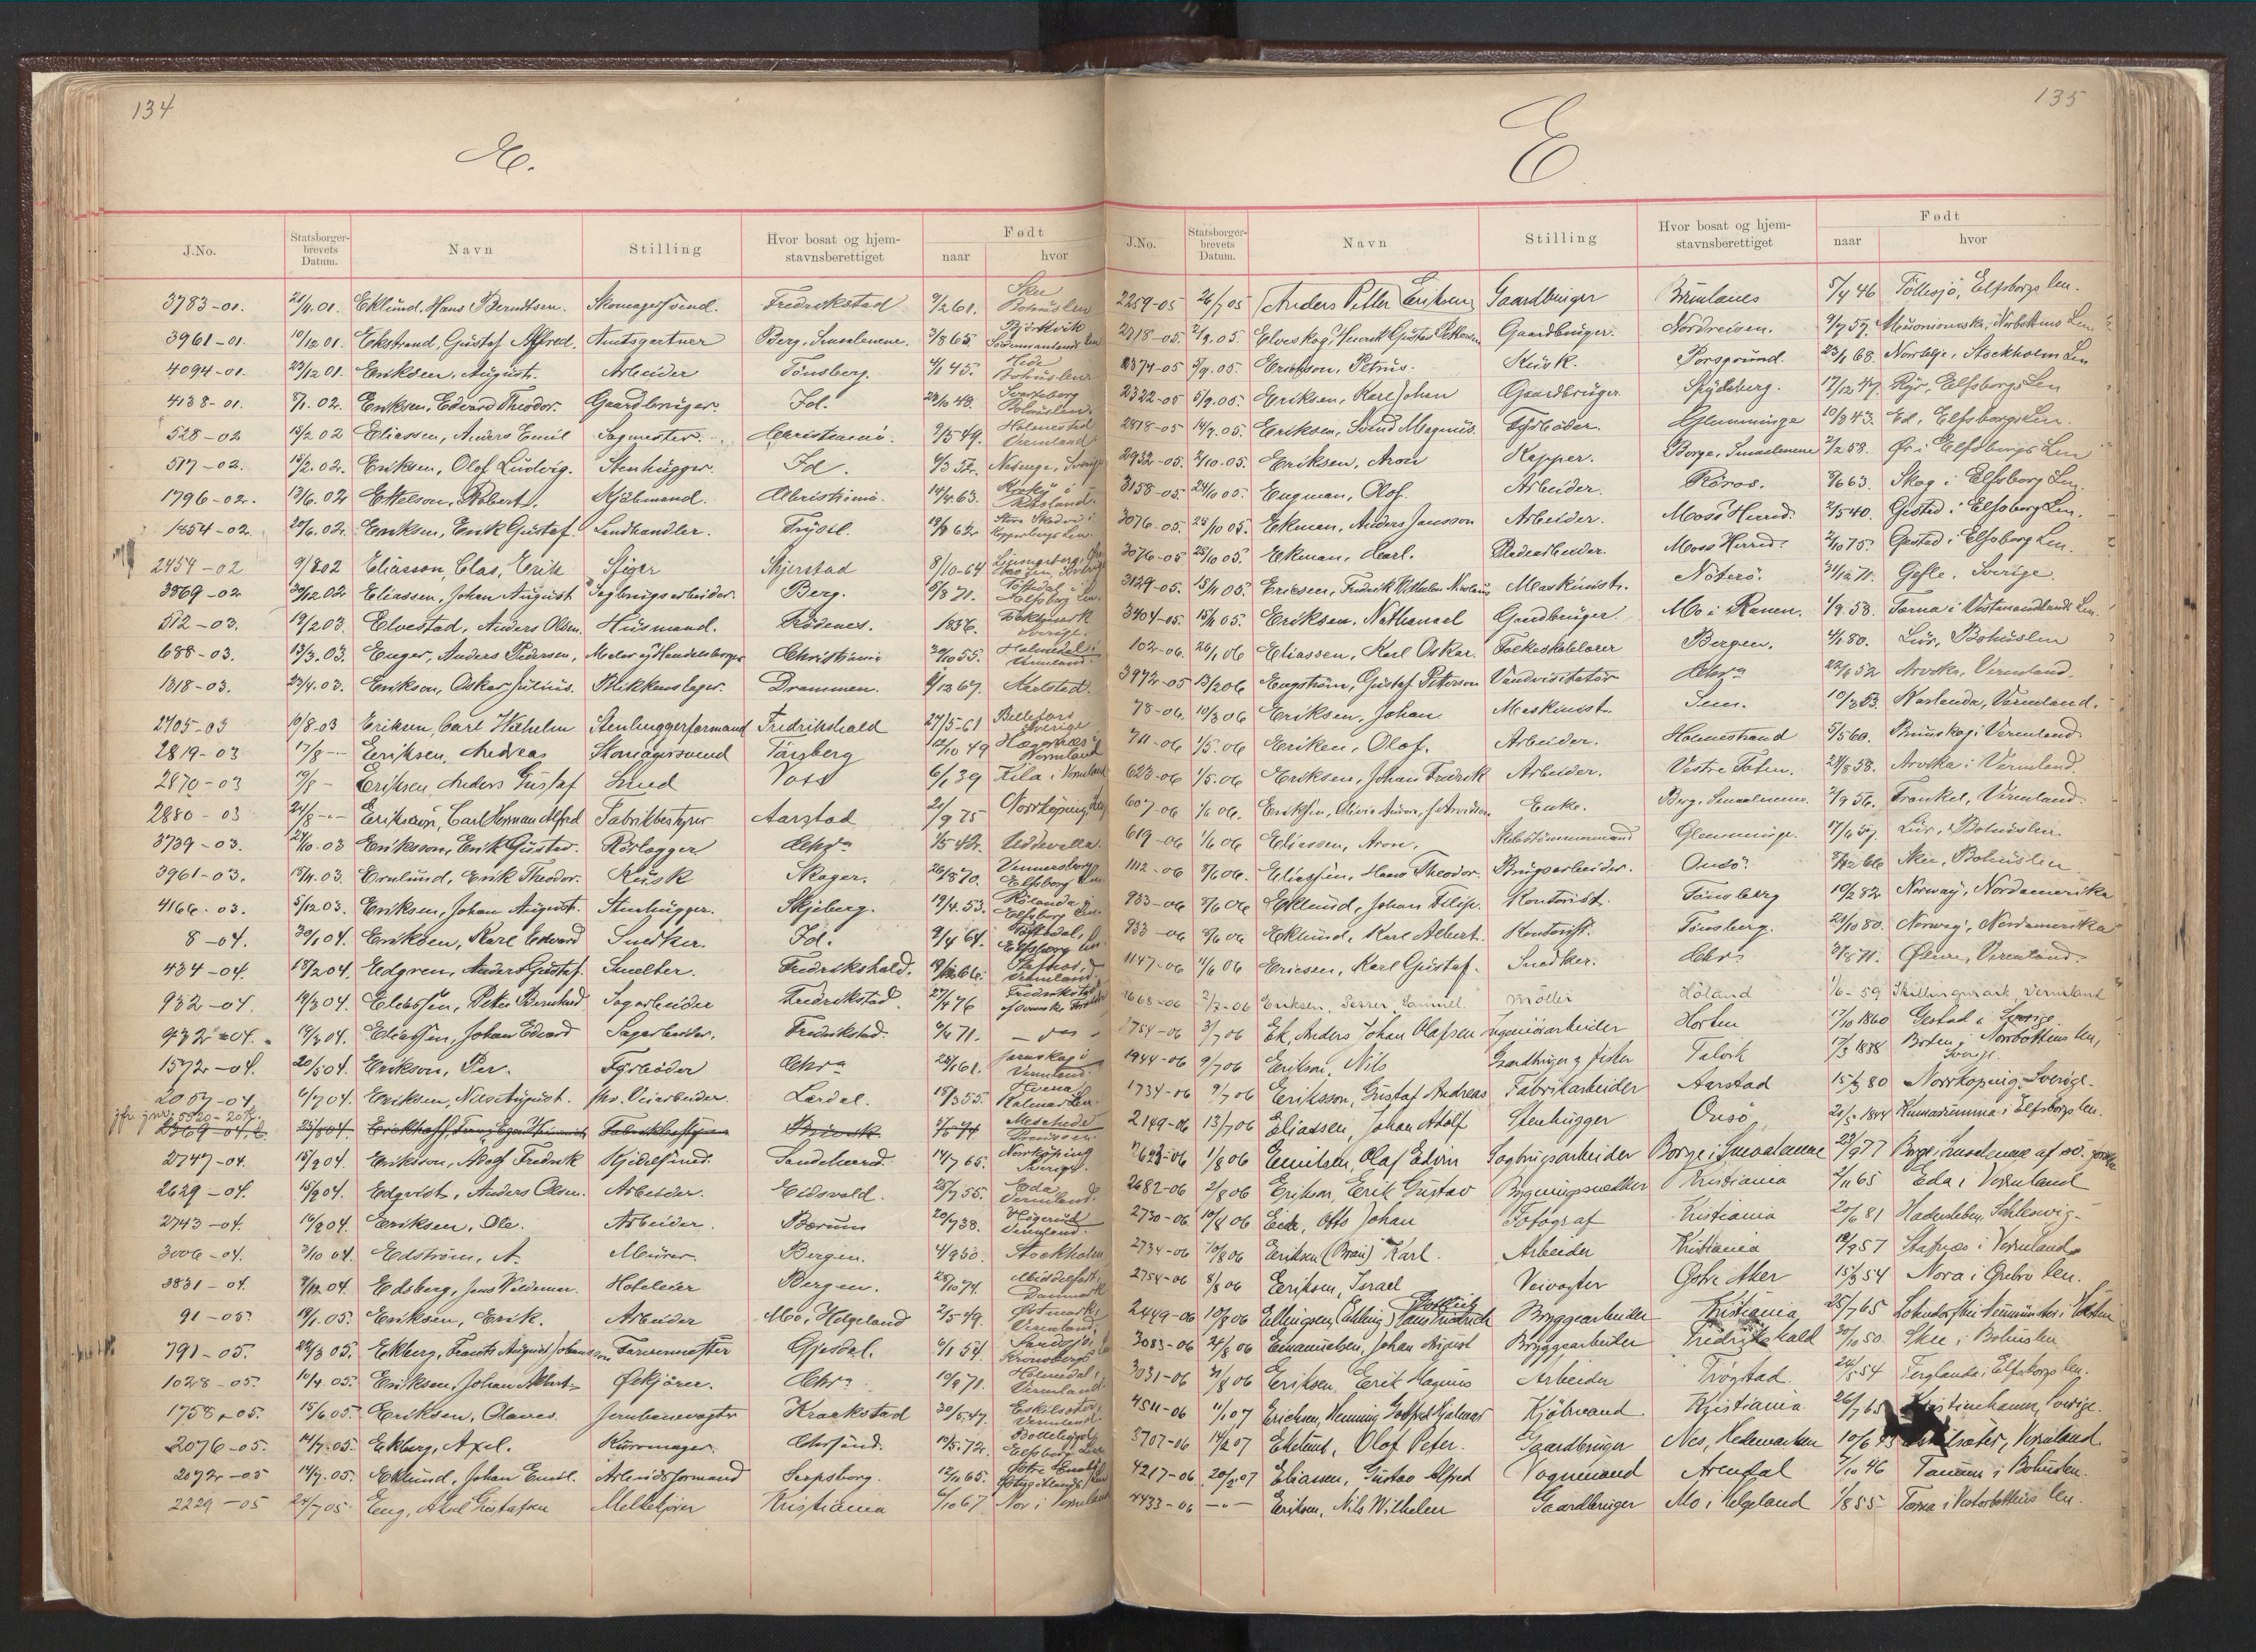 134
E.
J.No. Statsborger-brevets Datum. Navn Stilling Hvor bosat og hjem-stavnsberettiget Født naar hvor
3783-01. Eklund, Hans Berndtsen. Skomagersvend. Fredrikstad 9/2 61. Skee Bohuslen
3961-01. 10/12 01. Ekstrand, Gustaf Alfred. Amtsgartner Berg, Smaalenene. 3/8 65. Björkvik Södermanlands Len
4094-01. 23/12 01. Eriksen, August. Arbeider Tönsberg. 4/1 45. Hede Bohuslen
4138-01. 8/1. 02. Eriksen, Edvard Theodor. Gaardbruger. Id. 23/10 48. Svarteborg Bohuslen.
528-02 15/2 02 Eliassen, Anders Emil Sagmester. Christiania. 9/5 49. Holmedal Vermland
517-02. 15/2. 02. Eriksen, Olof Ludvig. Stenhugger. Id. 6/3 52. Nesinge, Sverige
1796-02. 13/6. 02 Ettelson, Robert. Kjöbmand. Christiania. 14/4 63.
1854-02 20/6. 02. Eriksen, Erik Gustaf. Lindhandler. Trysil. 19/8 62
2454-02 9/8 02 Eliasson, Clas, Erik Stiger Skjerstad 8/10-64
3869-02 30/12 02 Eliassen, Johan August Sagbrugsarbeider. Berg. 8/8 71. Töftedal i Elfsborg Len.
512-03. 19/2 03. Elvestad, Anders Olsen. Husmand. Rödenes. 1836. Sverige.
688-03. 13/3. 03. Enger, Anders Pedersen, Maler og Handelsborger Christiania 29/10 55. Holmedal i Vermland.
1318-03. 23/4. 03. Erikson, Oskar Julius. Blikkenslager. Drammen. 9/12 67. Karlstad.
2705-03 10/8-03 Eriksen, Carl Wilhelm Stenhuggerformand Fredrikshald 27/5-61 Billefors Sverige
2819-03 17/8-- Eriksen, Andreas Skomagersvend Tönsberg 12/10 49 Vermland
2870-03 19/8- Eriksen, Anders Gustaf Smed Voss 6/1 39 Kila i Vermland
2880-03 24/8-"- Erikson, Carl Herman Alfred Fabrikbestyrer Aarstad 21/9 75 Norrköping
3739-03. 24/10. 03 Eriksson, Erik Gustav. Rörlægger. Chr.a 1/5 42. Uddevalla.
3961-03. 18/11. 03. Ernlund, Erik Theodor. Kusk Skoger. 26/8 70. Venersborg Elfsborg Len.
4166-03. 5/12 03. Eriksen, Johan August. Stenhugger. Skjeberg. 19/4. 53. Rölanda, Elfsborg Len.
8-04. 30/1 04. Eriksen, Karl Edvard Snedker. Id. 9/4 64. Töftedal, Elfsborg Len
434-04. 18/2 04. Edgren, Anders Gustaf. Smelter. Fredrikshald. Vermland.
932-04. 19/3 04. Eliassen, Peter Bernhard Sagarbeider Fredrikstad. 27/4 76 Fredrikstad af svenske Forældre
932-04. 19/3 04. Eliassen, Johan Edvard Sagarbeider. Fredrikstad. 9/6 71. - do -
1572-04. 20/5 04. Erikson, Per. Fyrböder Chr.a 28/1 61. Jernskog i Vermland.
2057-04 6/7 04. Eriksen, Nils August. fhv. Veiarbeider. Lærdal. 18/3 55. Kalmar Len.
jfr. jnr. 5520-20 K.
2369-04. 23/8 04. Erickhoff, Franz Fabrikbestyrer Brevik Meschede
2747-04. 15/9 04. Eriksson, Adolf Fredrik Kjedelsmed. Sandeherred. 14/7 65. Norrköping Sverige.
2629-04. 15/9 04. Edqvist, Anders Olsen. Arbeider. Eidsvold. 28/7 55. Eda, Vermland.
2743-04. 16/9 04. Eriksen, Ole. Arbeider. Bærum 20/7 38. Högerud Vermland.
3006-04. 3/10 04. Edström, A. Murer. Bergen. 4/9 50. Stockholm
3831-04. 9/12 04. Edsberg, Jens Valdemar. Hoteleier Bergen. 28/10 74. Middelfart, Danmark
91-05. 19/1. 05. Eriksen, Erik. Arbeider Mo, Helgeland 2/5 49. Östmark, Vermland.
791-05. 22/3 05. Ekberg, Frants August Johansson Farvermester Gjesdal. 6/1 54. Kronobergs
1028-05. 10/4. 05. Eriksen, Johan Albert. Ölkjörer. Chr.a 10/9 71. Holmedal, Vermland
1758-05. 15/6 05. Eriksen, Olaves. Jernbanevogter Kraakstad 30/5. 47. Eskilsæter, Vermland.
2076-05. 14/7. 05. Ekberg, Axel. Kurvmager. Chrsand. 10/5. 72. Bollebygd, Elfsborg Len
2072-05 14/7. 05. Eklund, Johan Emil. Arbeidsformand Sarpsborg. 12/11 65.
2229-05 24/7 05. Eng, Axel Gustafsen Mellekjörer Kristiania 6/10 67 Nor i Vermland
135
E
J.No. Statsborger-brevets Datum. Navn Stilling Hvor bosat og hjem-stavnsberettiget Født naar hvor
2259-05 26/7 05 Anders Petter Eriksen Gaardbruger Brunlanes 5/4 46 Töllesjö, Elfsborgs len.
2718-05. 2/9. 05. Elveskog, Henrik Gustav Pettersen Gaardbruger. Nordreisen. 9/7 57. Muonioniska, Norbottens Len
2374-05 5/9. 05. Erikson, Petrus. Kusk. Porsgrund. 23/1 68. Norrtelje, Stockholm Len
2322-05 5/9. 05. Eriksen, Karl Johan Gaardbruger. Spydeberg. 17/12 47. Elfsborgs Len
2818-05 14/9. 05. Eriksen, Svend Magnus. Fyrböder. Glemminge 10/3 43. Ed, Elfsborgs Len.
2932-05. 2/10. 05. Eriksen, Aron Kopper. Borge, Smaalenene 2/2 58. Ör i Elfsborgs Len
3158-05. 24/10 05. Engman, Olof. Arbeider. Röros. 8/6 63. Skog i Elfsborg Len.
3076-05. 25/10 05. Ekman, Anders Jansson Arbeider. Moss Herred. 2/5 40. Gestad i Elfsborg Len.
3076-05 25/10 05. Ekman, Carl. Moss Herred. 2/10 75. Gestad i Elfsborg Len.
3129-05. 15/11 05. Ericsen, Fredrik Vilhelm Nicolaus Maskinist. Nöterö. 31/12 71. Gefle, Sverige.
3404-05. 15/11 05. Eriksen, Nathanael Gaardbruger. Mo i Ranen. 1/9 53. Tärna i Vestmanlands Len.
102-06. 26/1 06 Eliassen, Karl Oskar. Folkeskolelærer Bergen. 4/1 80. Lur, Bohuslen
3972-05 13/2 06 Engström, Gustaf Petterson Vandvisitatör Chr.a 22/6 52 Arvika, Vermland.
78-06. 10/3 06 Eriksen, Johan Maskinist. Sem. 10/3 53. Karlanda, Vermland.
711-06 1/5. 06 Eriken, Olof. Arbeider. Holmestrand 5/5 60. Brunskog i Vermland
623-06 1/5. 06 Eriksen, Johan Fredrik Arbeider. Vestre Toten. 24/8 53. Arvika i Vermland.
607-06 1/6 06. Eriksen, Olivia Aurora, f. Arvidsen Enke. Berg, Smaalenene. 2/9 56. Vermland.
619-06 1/6 06 Eliassen, Aron. Skibstömmermand Glemminge. 17/4 57 Lur, Bohuslen
1112-06 8/6 06. Eliassen, Hans Theodor. Brugsarbeider. Onsö. Skee, Bohuslen
933-06 8/6 06 Eklund, Johan Filip. Kontorist. Tönsberg 10/2 82 Norway, Nordamerika
933-06 8/6 06 Eklund, Karl Albert. Kontorist. Tönsberg. 21/10 80. Norway, Nordamerika
1147-06 11/6 06 Ericsen, Karl Gustaf. Snedker. Chr.a Vermland.
1668-06 2/7-06 Eriksen, Petter Samuel. Möller Höland 1/6-59 Skillingmark, Vermland
1754-06 3/7 06 Ek, Anders Johan Olafsen Ingeniörarbeider Horten 17/10 1860 Gestad i Sverige
1944-06 9/7 06 Erikson, Nils Gaardbruger og Fisker Talvik 17/3 1888 Boden i Norrbottens len, Sverige.
1734-06 9/7 06 Eriksson, Gustaf Andreas Fabrikarbeider Aarstad 15/3 80 Norrköping, Sverige
2149-06 13/7 06 Eliassen, Johan Adolf Stenhugger Onsö 21/5 1844 i Elfsborgs len.
2623-06 1/8 06 Emilsen, Olaf Edvin Sagbrugsarbeider Borge i Smaalenene 23/9 77 Borge i Smaalenene
2682-06 2/8 06 Erikson, Erik Gustav Bygningssnedker Kristiania 2/11 65 Eda i Vermland
2730-06 10/8 06 Eick, Otto Johan Fotograf Kristiania 25/6 81 Hadersleben, Schleswig-
2734-06 10/8 06 Eriksen (Braü) Karl. Arbeider Kristiania 19/9 57 Stafnæs i Vermland
2754-06 8/8 06 Eriksen, Israel Veivogter Östre Aker 15/3 54 Nora i Örebro len.
2449-06 10/8 06 Ellingsen, (Elling) Hans Friedrich Bryggearbeider Kristiania 25/7 65 Neumünster, Holstein
3083-06 24/8 06 Emanuelsen, Johan August Bryggearbeider Fredrikshald 30/10 50. Skee i Bohuslen
3031-06 31/8 06 Eriksen, Erik Magnus Arbeider Trögstad. 24/8 54 Elfsborgs len.
4511-06 11/1 07 Erichsen, Henning Gottfred Hjalmar Kjöbmand Kristiania 26/7 65 Kristinehamn, Sverige.
3707-06 14/2 07 Ekelund, Olof Peter. Gaardbruger Nes, Hedemarken 10/6 Vermland
4217-06 20/2 07 Eliassen, Gustav Alfred Vognmand Arendal 7/10 46 Tanum i Bohuslen.
4433-06 -"- Erikson, Nils Wilhelm Gaardbruger Mo i Helgeland 1/8 55 Tärna i Vesterbottens len.